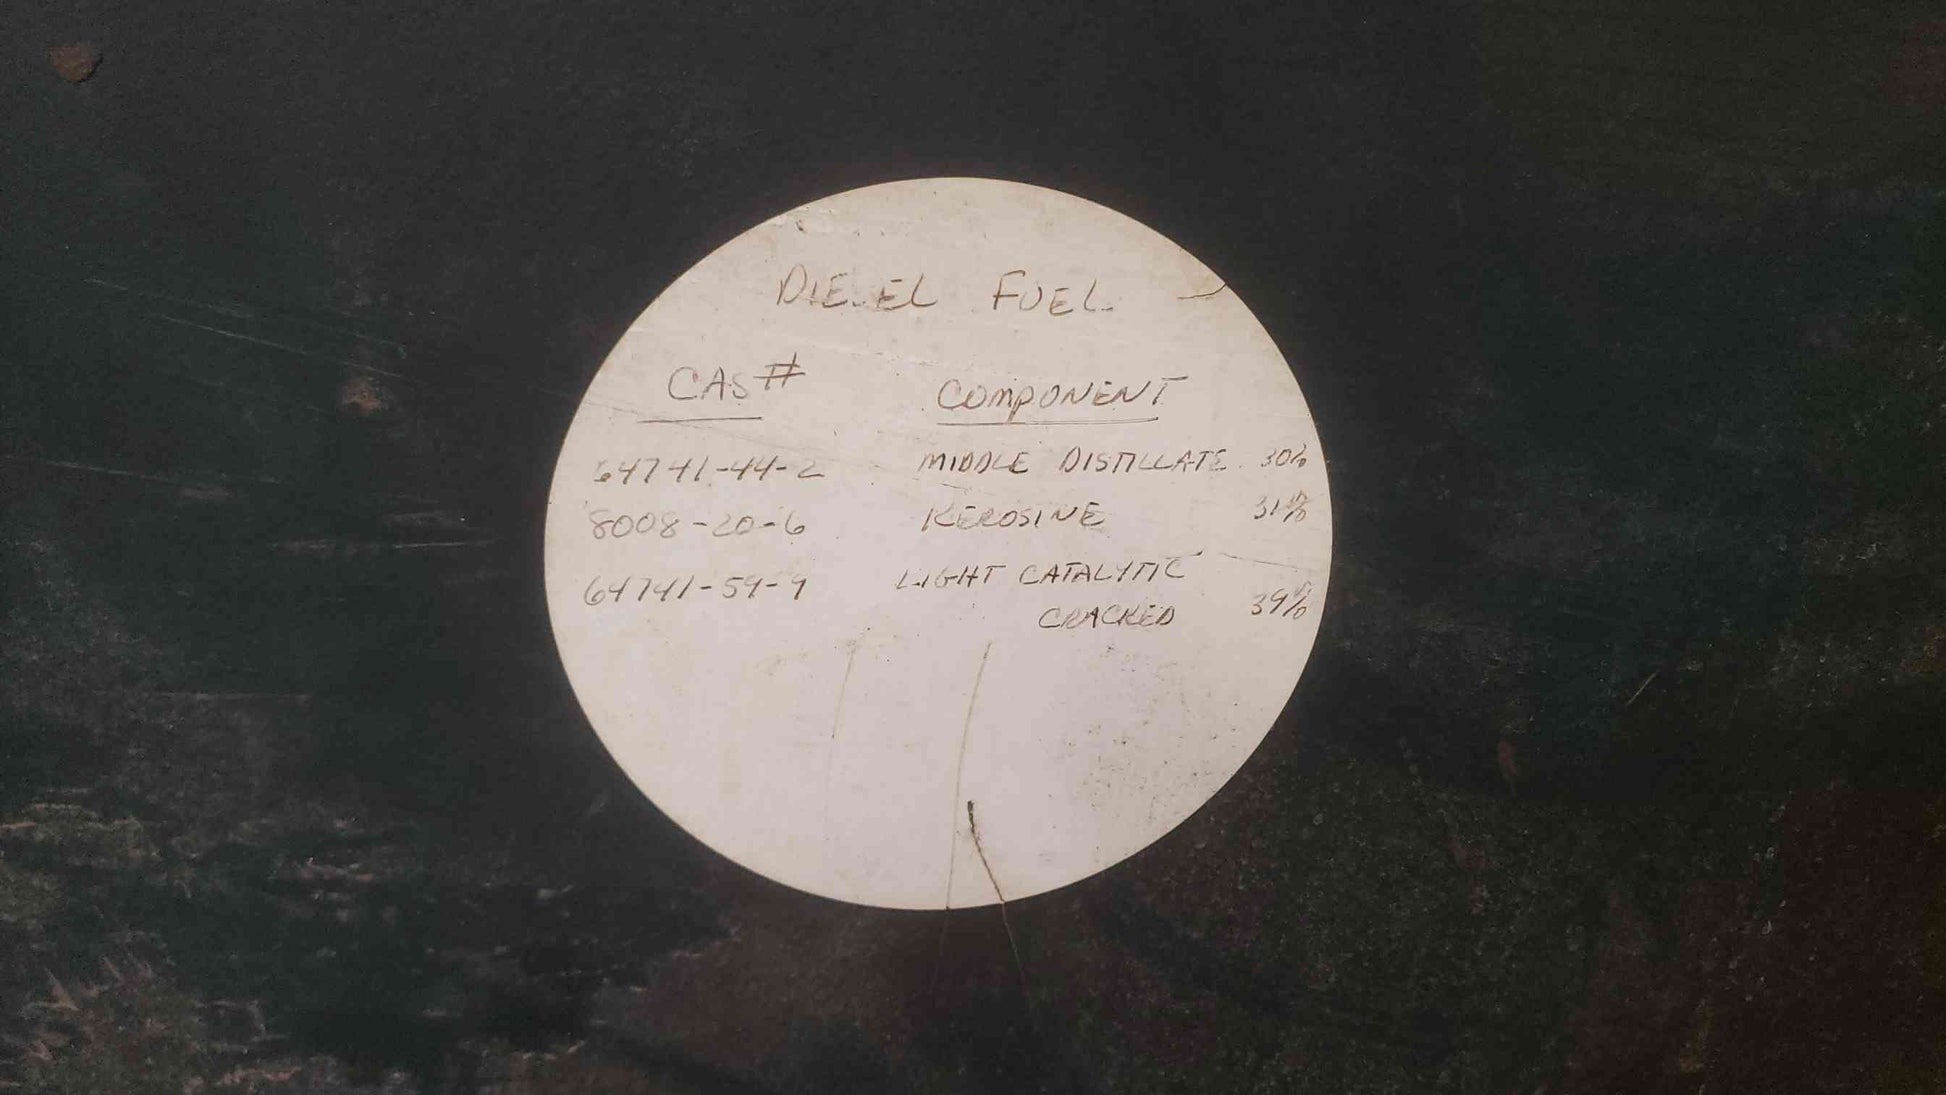 DIESEL FUEL
CAS# COMPONENT
64741-44-2 MIDDLE DISTILLATE 30%
8008-20-6 KEROSINE 31%
64741-59-9 LIGHT CATALYTIC
CRACKED 39%